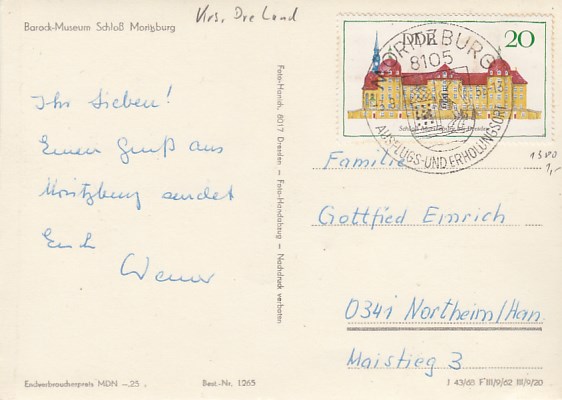 Barock-Museum Schloß Moritzburg
Krs. Dresden Land
Ihr Lieben!
Einen Gruß aus
Moritzburg sendet
Euch
Werner
Foto-Handabzug – Nachdruck verboten
DDR 20
MORITZBURG
8105
AUSFLUGS- UND ERHOLUNGSORT
Schloß Moritzburg bei Dresden
1300
1,-
Familie
Gottfied Emrich
0341 Northeim/Han.
Maistieg 3
Endverbraucherpreis MDN –.25
Best.-Nr. 1265
J 43/65 F III/9/62 III/9/20